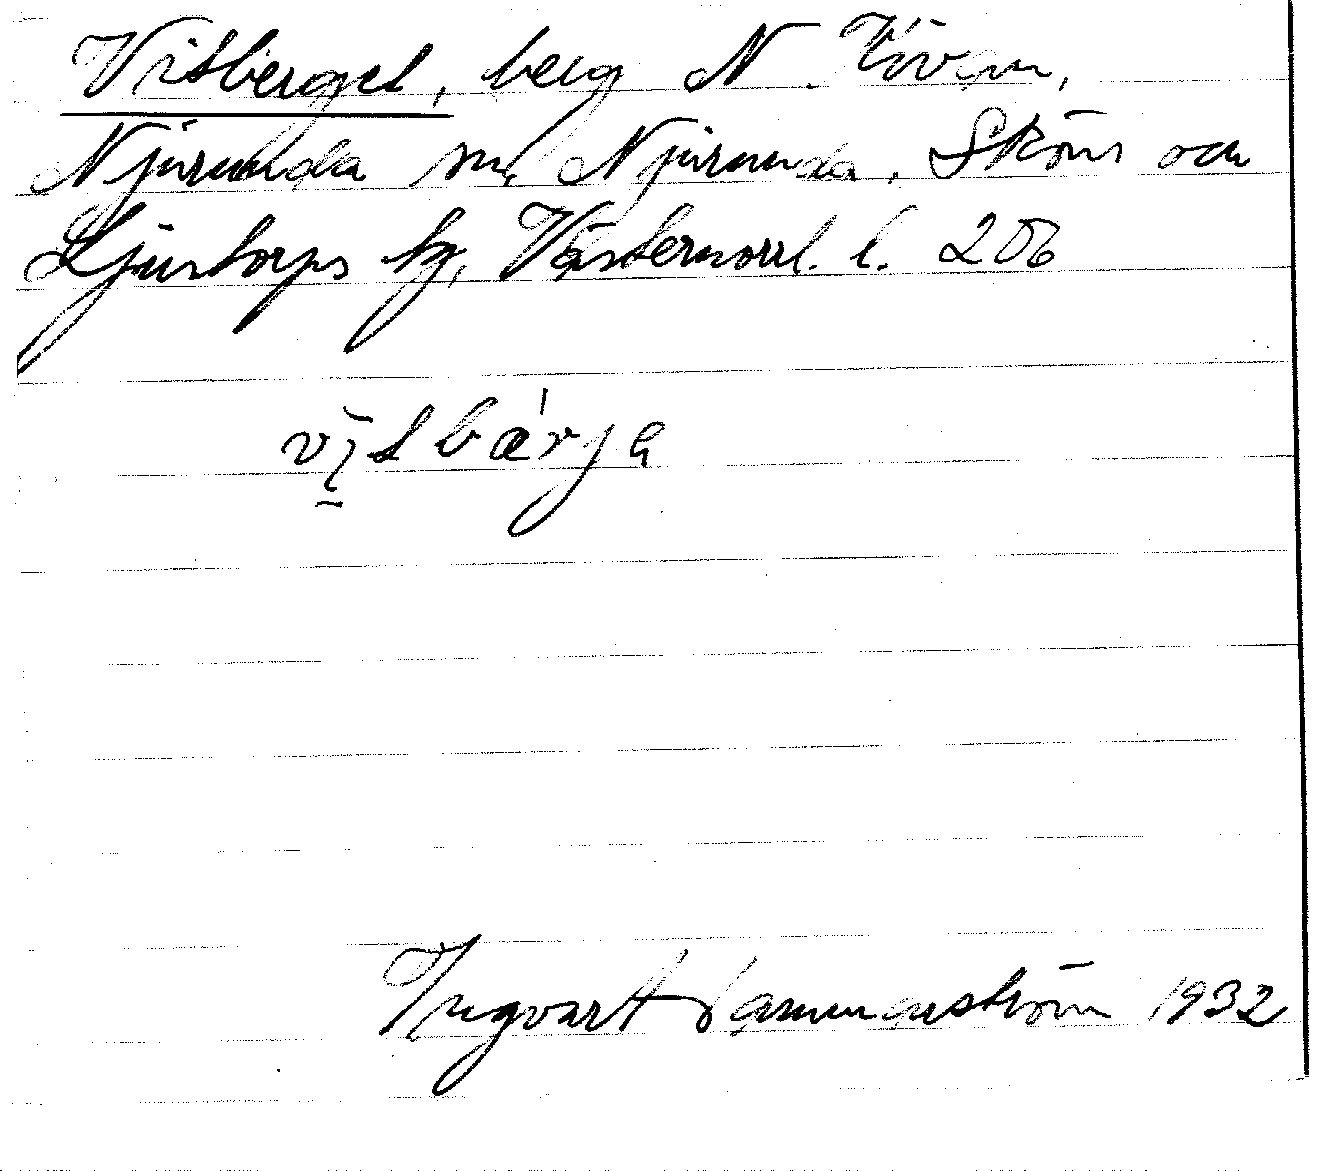 Vitberget, berg N. Köven,
Njurunda sn, Njurunda, Sköns och
Ljustorps tg, Västernorrl. l. 206
Ingvar Hammarström 1932